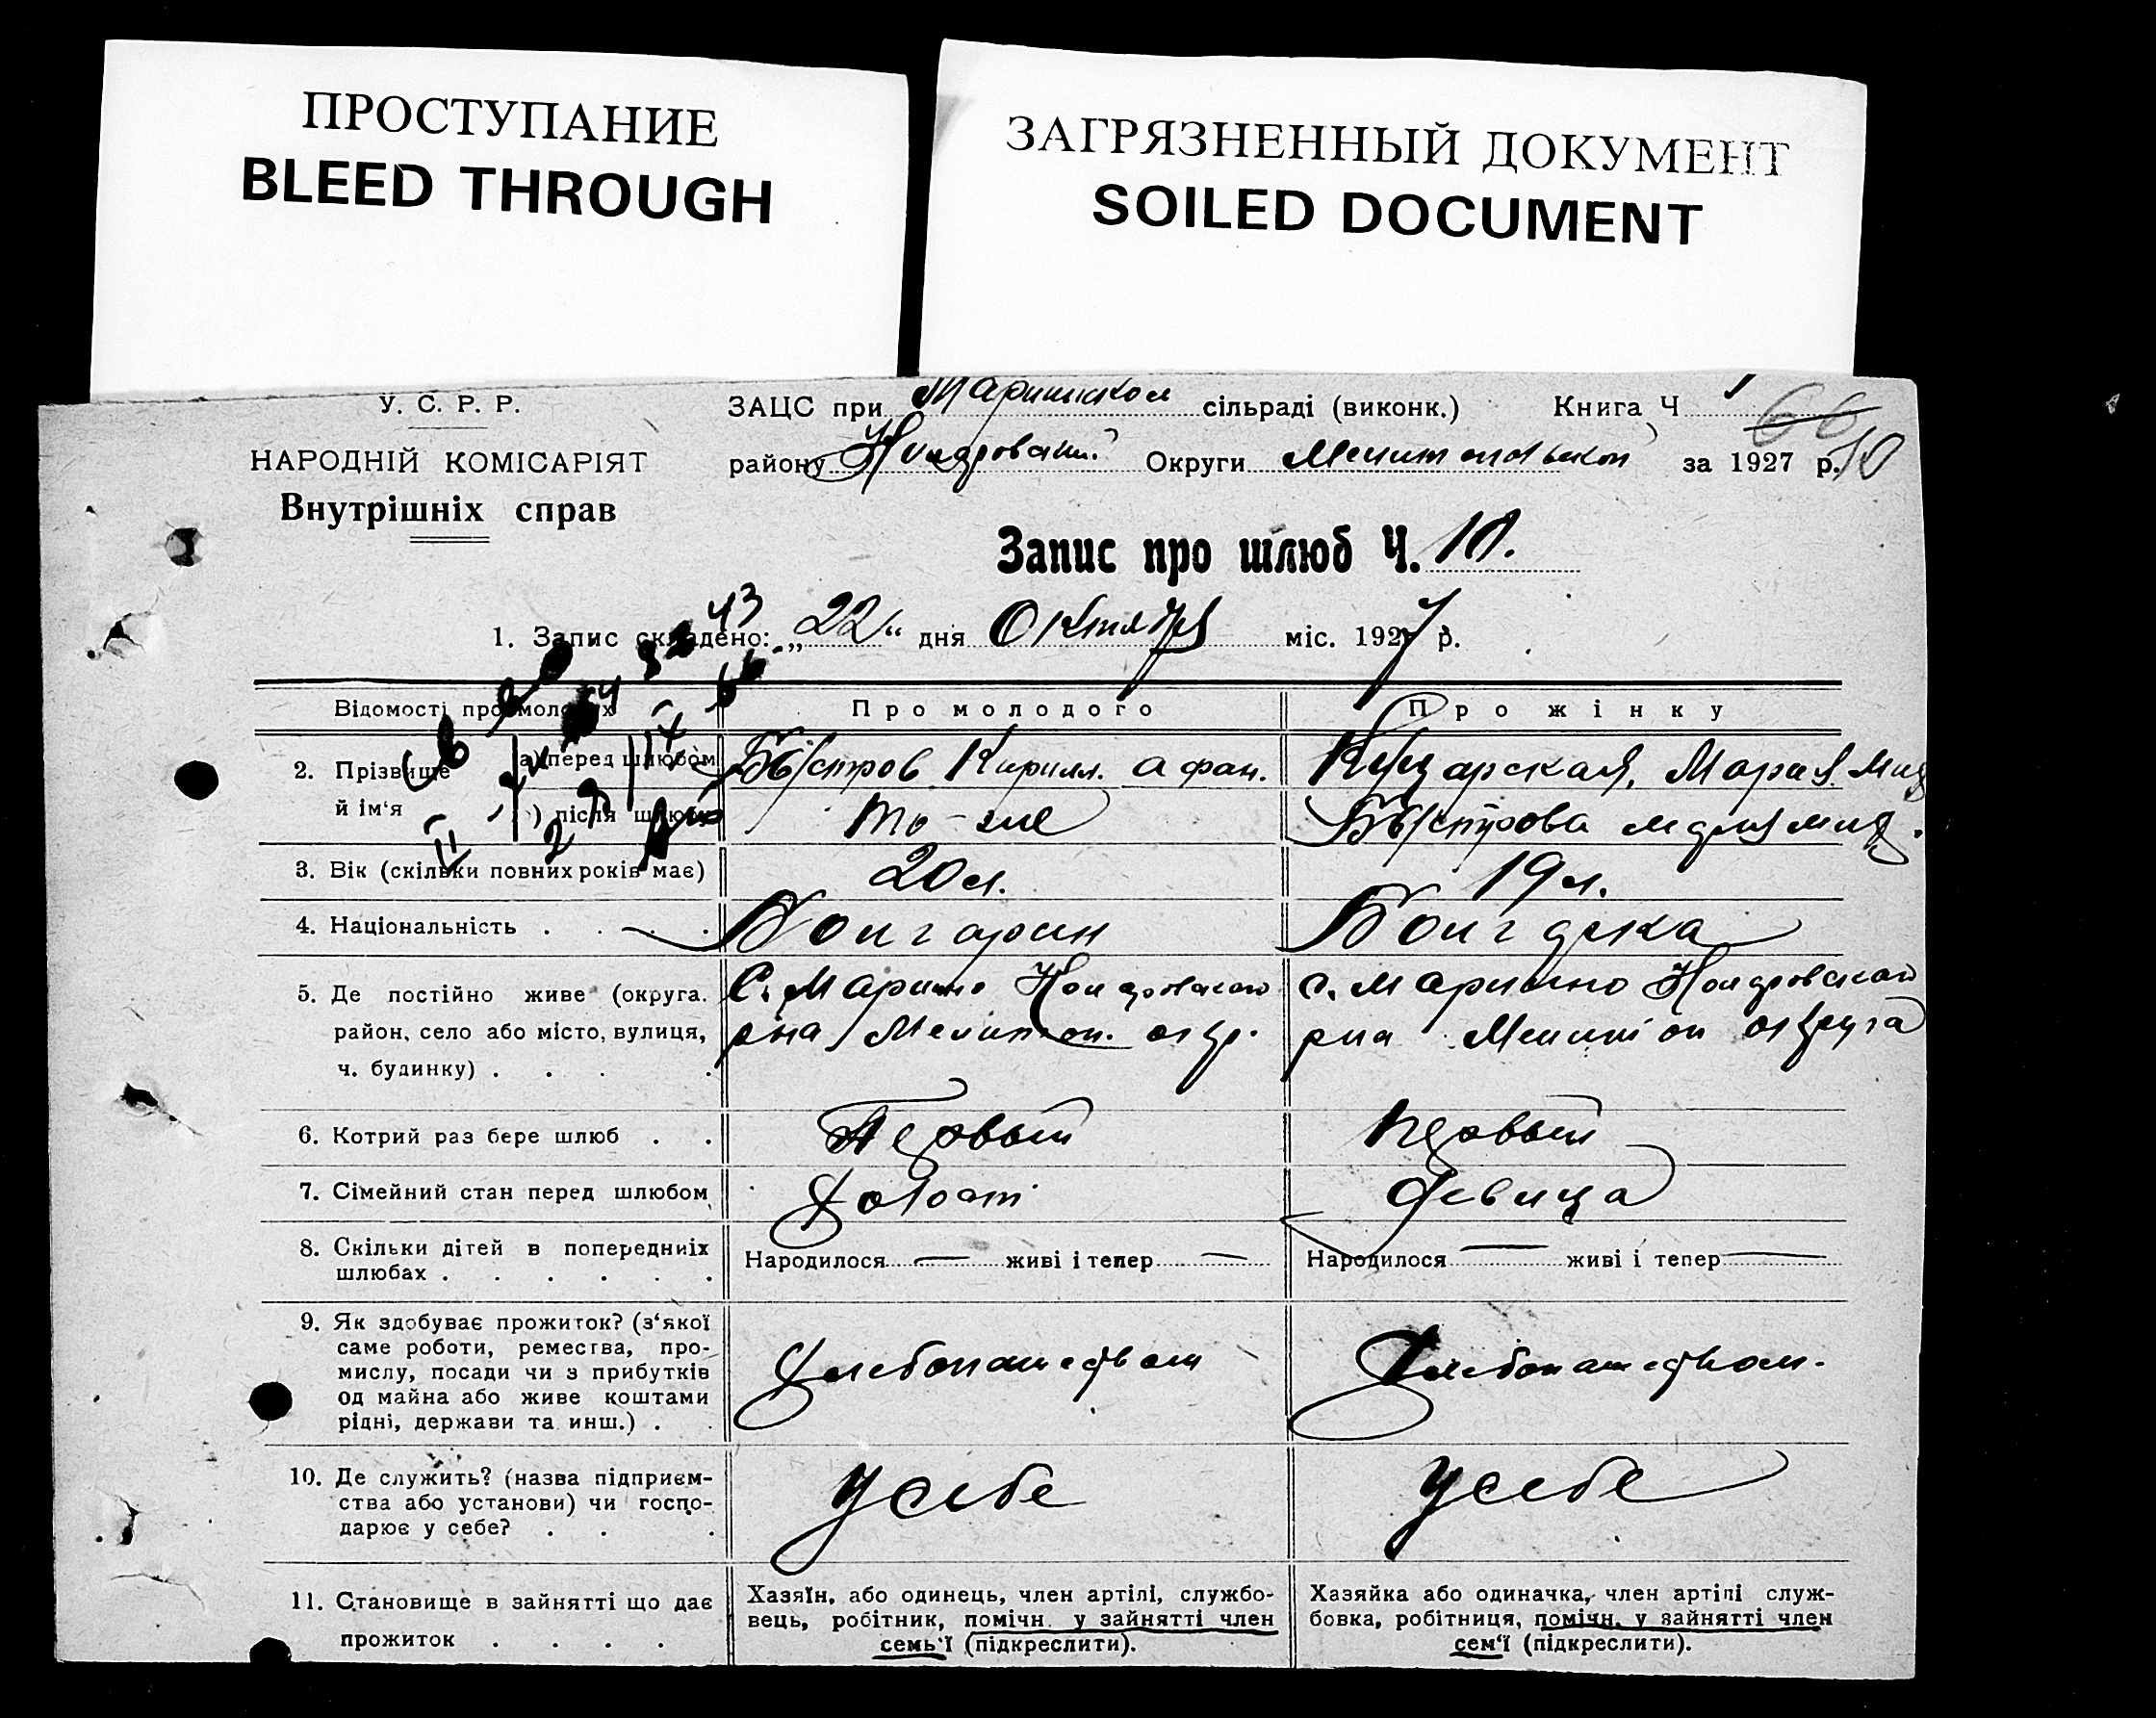 ПРОСТУПАНИЕ
BLEED THROUGH
ЗАГРЯЗНЕННЫЙ ДОКУМЕНТ
SOILED DOCUMENT
У. С. Р. Р.
НАРОДНІЙ КОМІСАРІЯТ
Внутрішніх справ
ЗАЦС при сільраді (виконк.) Книга Ч
району Округи за 1927 р.
66 10
Запис про шлюб Ч. 10.
1. Запис складено: „22“ дня Октября міс. 1927 р.
Відомості про молодих
Про молодого
Про жінку
2. Прізвище й ім‘я
а) перед шлюбом
Быстров Кирилл. Афан.
Мария Мих
) після шлюбу
то-же
Быстрова Мария Мих.
3. Вік (скільки повних років має)
20 л.
19 л.
4. Національність . . . .
Болгарин
Болгарка
5. Де постійно живе (округа.
район, село або місто, вулиця,
ч. будинку) . . . .
С. Марино
рна Мелитоп. окр.
с. Марино
рна Мелитоп округа
6. Котрий раз бере шлюб . .
Первый
Первый
7. Сімейний стан перед шлюбом
Холост
Девица
8. Скільки дітей в попередниіх
шлюбах . . . . . .
Народилося — живі і тепер —
Народилося — живі і тепер —
9. Як здобуває прожиток? (з‘якої
саме роботи, ремества, про-
мислу, посади чи з прибутків
од майна або живе коштами
рідні, держави та инш.) . .
Хлебопашеством
Хлебопашеством.
10. Де служить? (назва підприєм-
ства або установи) чи госпо-
дарює у себе? . . .
У себе
У себе
11. Становище в зайнятті що дає
прожиток . . . .
Хазяїн, або одинець, член артілі, службо-
вець, робітник, помічн. у зайнятті член
семь‘ї (підкреслити).
Хазяйка або одиначка, член артілі служ-
бовка, робітниця, помічн. у зайнятті член
сем‘ї (підкреслити).